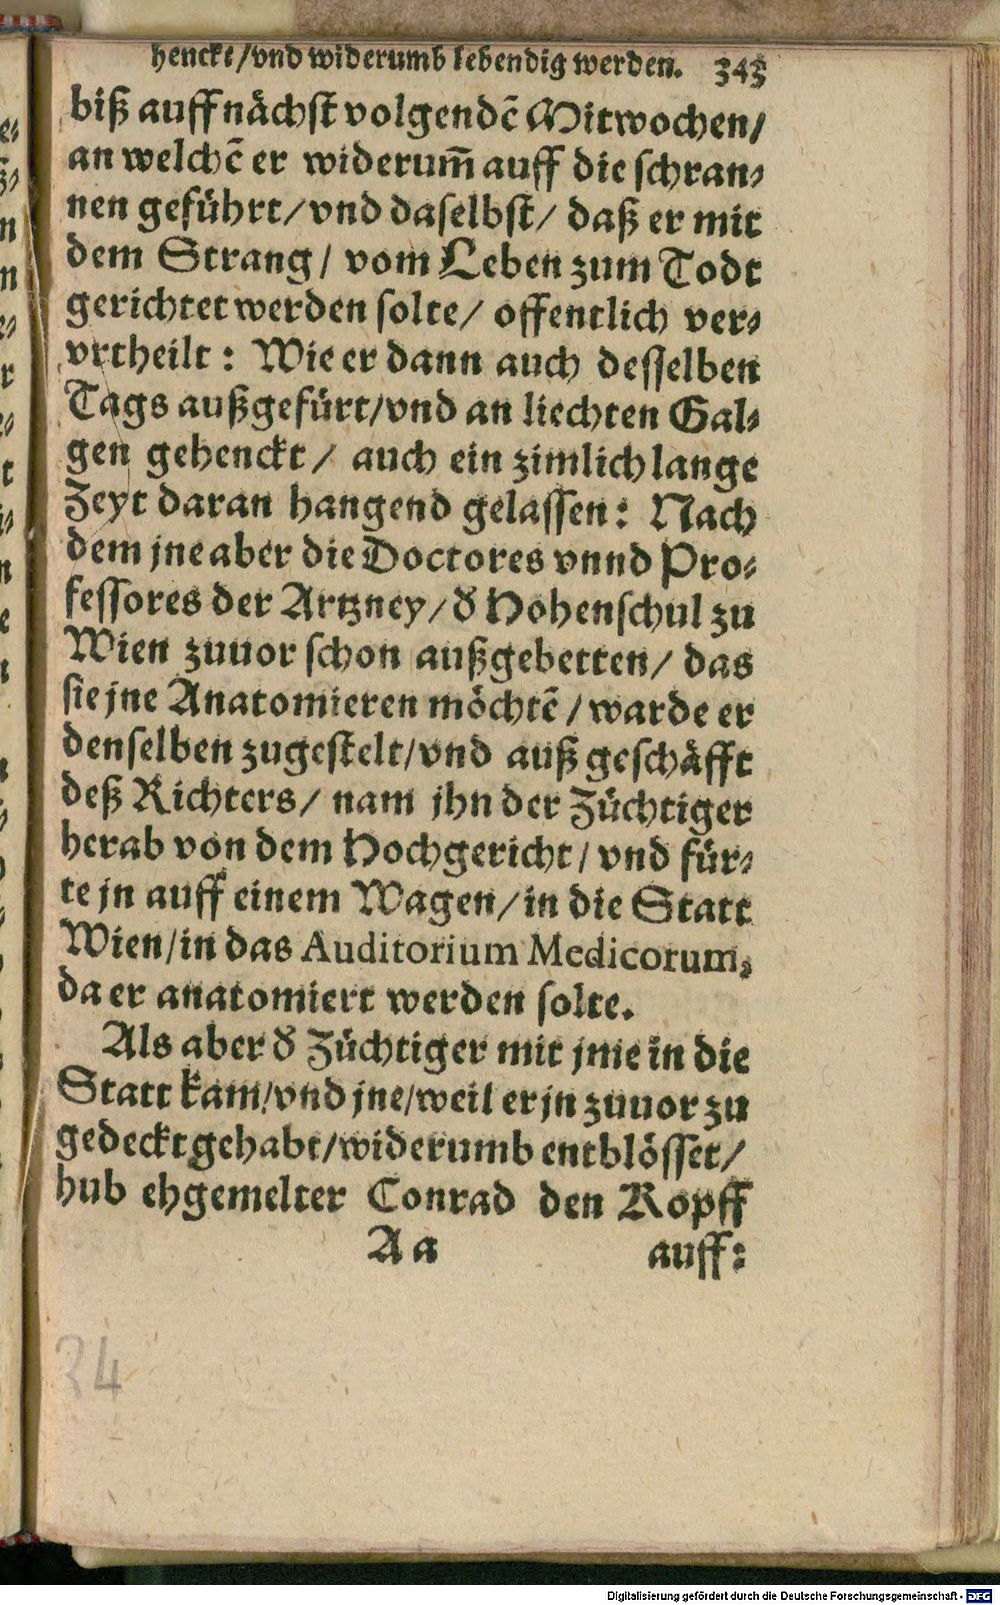 henckt/vnd widerumb lebendig werden. 343
biß auff nächst volgendẽ Mitwochen/
an welchẽ er widerum̃ auff die schran-
nen geführt/vnd daselbst/ daß er mit
dem Strang/ vom Leben zum Todt
gerichtet werden solte/ offentlich ver-
vrtheilt: Wie er dann auch desselben
Tags außgefürt/vnd an liechten Gal-
gen gehenckt/ auch ein zimlich lange
Zeyt daran hangend gelassen: Nach
dem jne aber die Doctores vnnd Pro-
fessores der Artzney/ď Hohenschul zu
Wien zuuor schon außgebetten/ das
sie jne Anatomieren möchtẽ/warde er
denselben zugestelt/vnd auß geschäfft
deß Richters/ nam jhn der Züchtiger
herab von dem Hochgericht/ vnd für-
te jn auff einem Wagen/in die Statt
Wien/in das Auditorium Medicorum,
da er anatomiert werden solte.
Als aber ď Züchtiger mit jme in die
Statt kam/vnd jne/weil er jn zuuor zu
gedeckt gehabt/widerumb entblösset/
hub ehgemelter Conrad den Kopff
Aa auff:
34
Digitalisierung gefördert durch die Deutsche Forschungsgemeinschaft - DFG